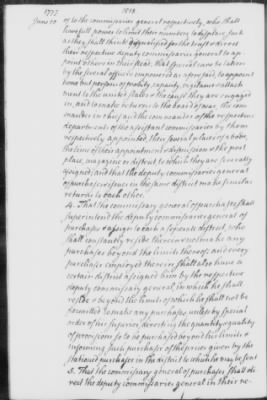 1777. 1819.
June 10 or to the commissaries general respectively, who shall
have full power to limit their numbers, to displace such
as they shall think disqualified for the trust & direct
their respective deputy commissaries general to ap
point others in their stead, that special care be taken
by the several officers impowered as aforesaid, to appoint
none but persons of probity, capacity, vigilance & attach
ment to the united states & the cause they are engaged
in, and to make returns to the board of war, the com
mander in chief and the commander of the respective
departments of the assistant commissaries by them
respectively appointed, their several places of abode,
the time of their appointment & dismission & the post
place, magazine or district to which they are severally
assigned; and that the deputy commissaries general
of purchases & issues in the same district make similar
returns to each other.
4. That the commissary general of purchases shall
superintend the deputy commissaries general of
purchases & assign to each a separate district, who
shall constantly reside therein & not make any
purchases beyond the limits thereof; and every
purchaser employed therein shall also have a
certain district assigned him by the respective
deputy commissary general, in which he shall
reside & beyond the limits of which he shall not be
permitted to make any purchases, unless by special
order of his superior, directing the quantity & quality
of provisions so to be purchased beyond his limits &
informing such purchaser of the prices given by the
stationed purchaser in the district to which he may be sent
5. That the commissary general of purchases shall di
rect the deputy commissaries general in their re-